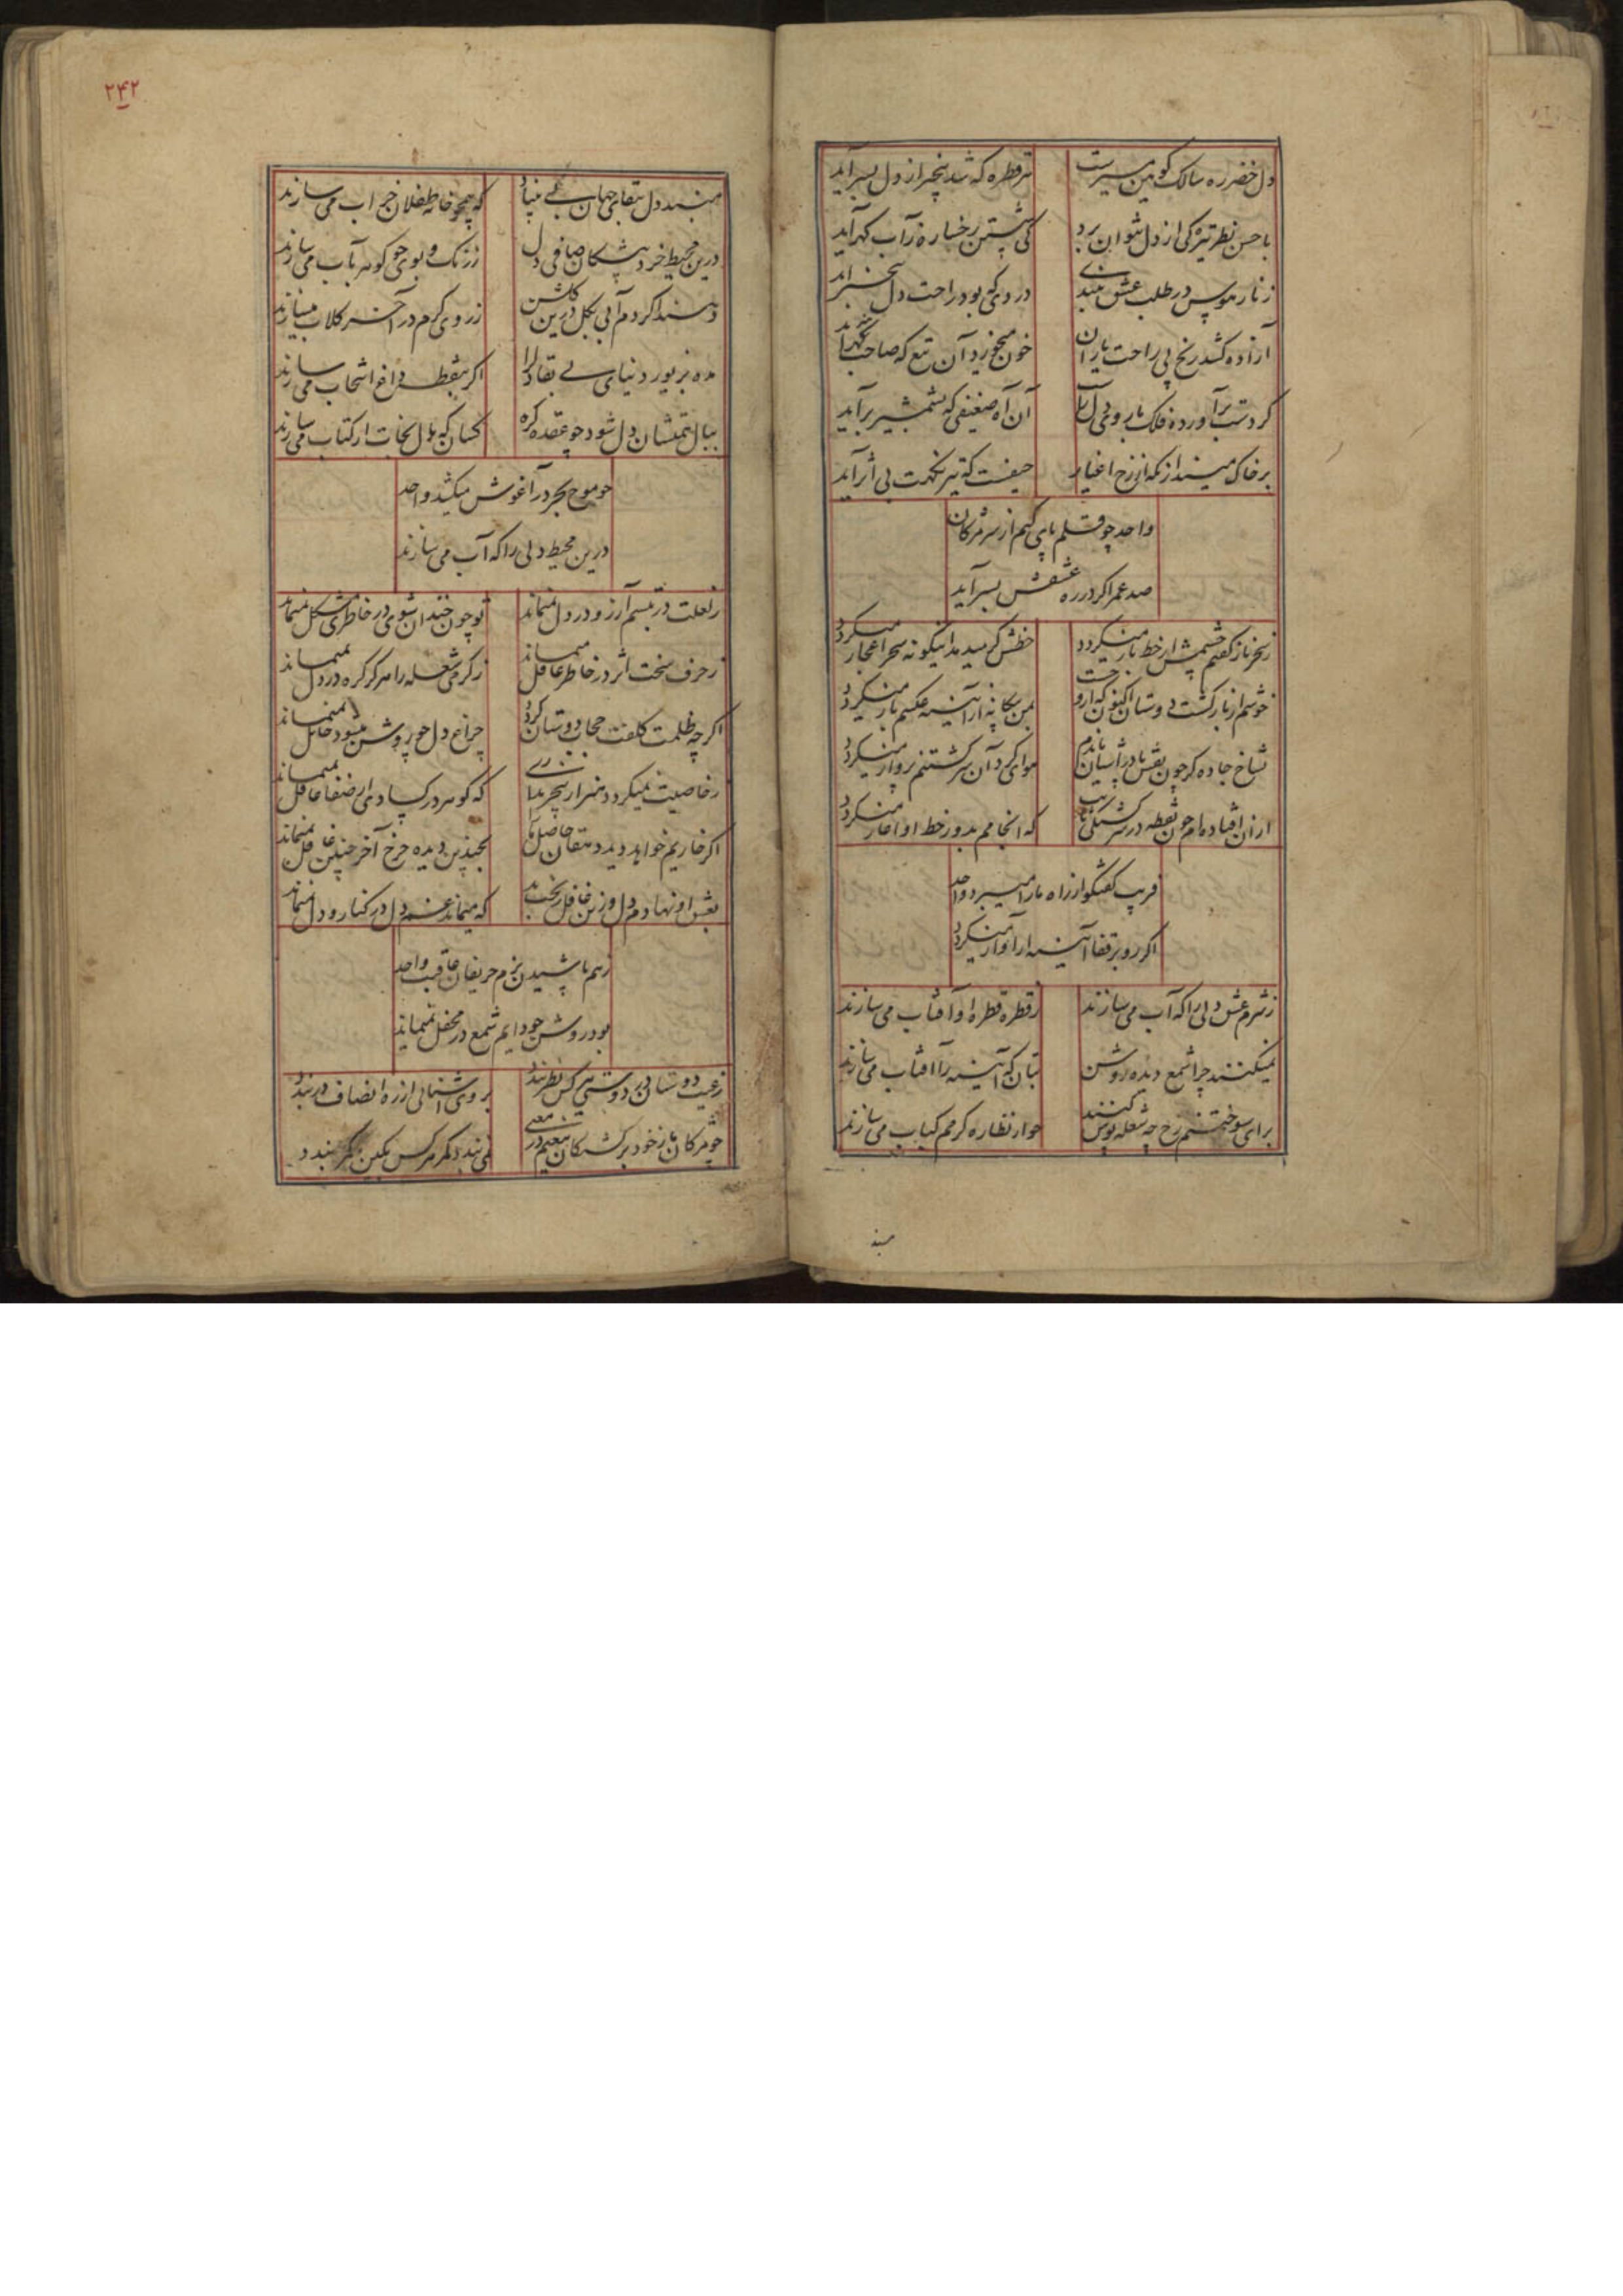 دل خضر ره سالک کونین سیرست
هر قطره که شد پنجه از دل بسر آید
با حسن نظر تیرگی از دل نتوان برد
کی شستن رخساره ز آب گهر آید
زنار هوس در طلب عشق مبند
دردی که بود راحت دل
آزاده کشد رنج پی راحت یاران
خون میخورد آن تیغ که صاحب
گردست برآورده فلک با
آن آه ضعیفی که بشمشیر برآید
بر خاک میندار نگه از رخ اغیار
حیفست که تیر نگهت بی اثر آید
واحد چو قلم پای کنم از سر مژگان
صد عمر اگر در ره عشقش بسر آید
ز سحر ناز گفتم چشمش از خط باز میگردد
خطش گردید اینگونه سحر اعجاز میگردد
خوشم از بازگشت دوستان اکنون که از
بمن بیگانه از آئینه عکسم باز میگردد
بشاخ جاده گر چون نقش پا در آشیان
هوای گرد آن سرگشتنم پرواز میگردد
از آن افتاده‌ام چون نقطه در سرگشتگی
که انجامم بدور خط او آغاز میگردد
فریب گفتگو از راه ما را میبرد واحد
اگر رو بر قفا آئینه را آواز میگردد
ز شرم عشق دلی را که آب می سازند
ز قطره قطره او آفتاب می سازند
نمیکنند چرا شمع دیده روشن
بتان که آئینه را آفتاب می سازند
برای سوختنم رخ چه شعله پوش کنند
چو از نظاره گرمم کباب می سازند
مبند
۲۴۲
مبند دل ببقای جهان بی بنیاد
که همچو خانه طفلان خراب می سازند
درین محیط خرد پیشگان صافی دل
ز رنگ و بوی چو گوهر بآب می سازند
دهند اگر دم آبی بگل درین گلشن
ز روی گرم در آخر گلاب میسازند
مده بزیور دنیای بی بقا دل را
اگر بنقطه داغ انتخاب می سازند
ببال همتشان دل شود چو عقده گره
کسان که بال نجات از کتاب می سازند
چو موج بحر در آغوش میکشد واحد
درین محیط دلی را که آب می سازند
ز لعلت در تبسم آرزو در دل نمیماند
تو چون خندان شوی در خاطری مشکل نمیماند
ز حرف سخت اثر در خاطر عاقل نمیماند
ز گرمی شعله را هرگز گره در دل نمیماند
اگرچه ظلمت کلفت حجاب دوستان گردد
چراغ دل چو روشن میشود حائل نمیماند
ز خاصیت نمیگردد هنر از
که گوهر در کسادی از صفا غافل نمیماند
اگر خاریم خواهد دید دهقان حاصل ما
بچندین دیده چرخ آخر چنین غافل نمیماند
بعشق او نهادم دل
که میماند غم دل در کنار و دل نمیماند
ز هم پاشیدن بزم حریفان عاقبت واحد
بود روشن چو دایم شمع در محفل نمیماند
ز عیب دوستان در دوستی هر کس نظر بندد
بروی آشنائی از ره انصاف در بندد
چو مژگان باز خود برگشتگان
نمی بندد مگر هر کس بکین هم کمر بندد